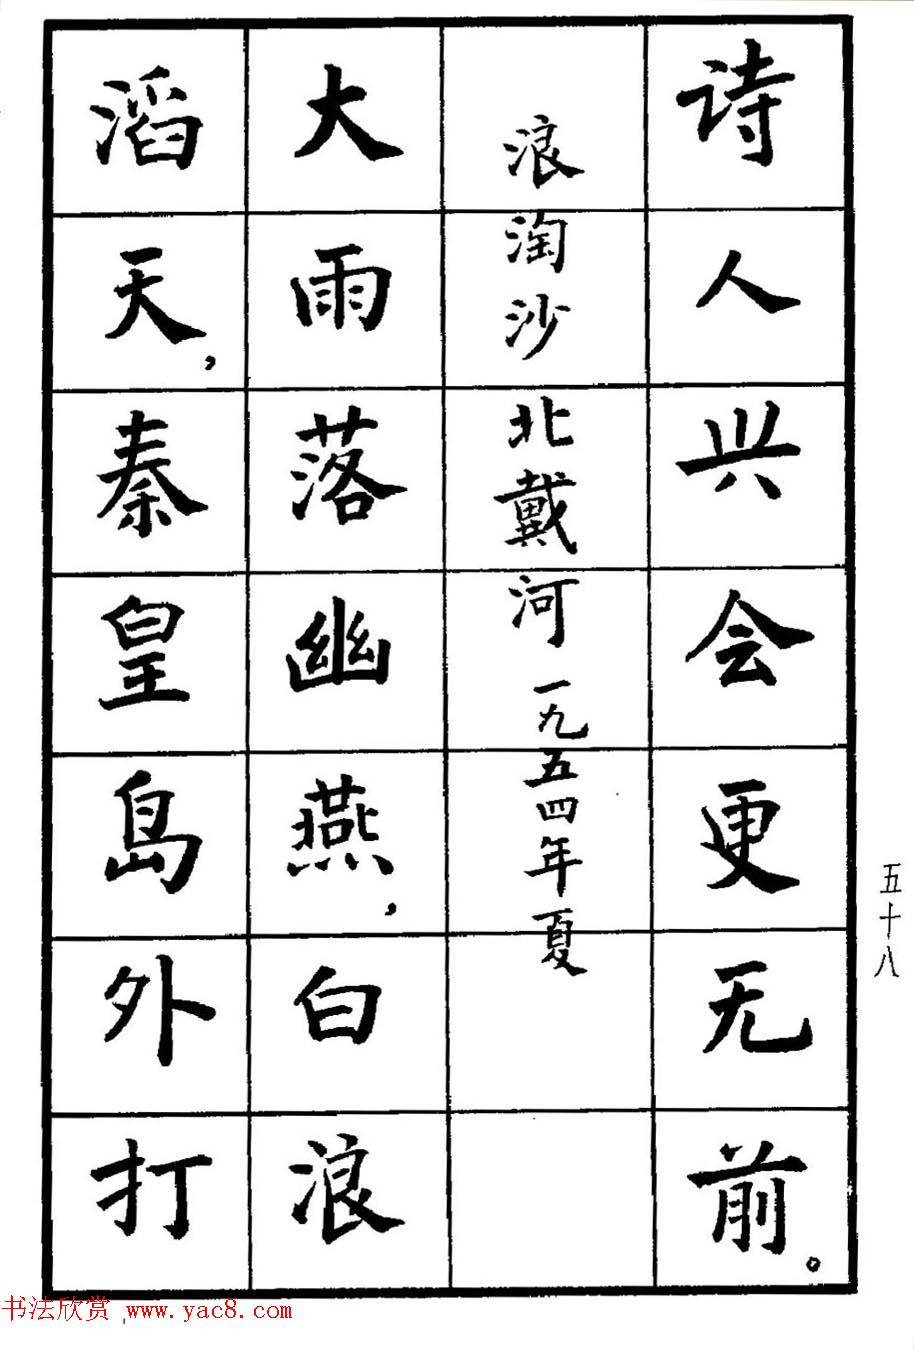 诗人兴会更无前。
浪淘沙 北戴河 一九五四年夏
大雨落幽燕，白浪
滔天，秦皇岛外打
五十八
书法欣赏 www.yac8.com